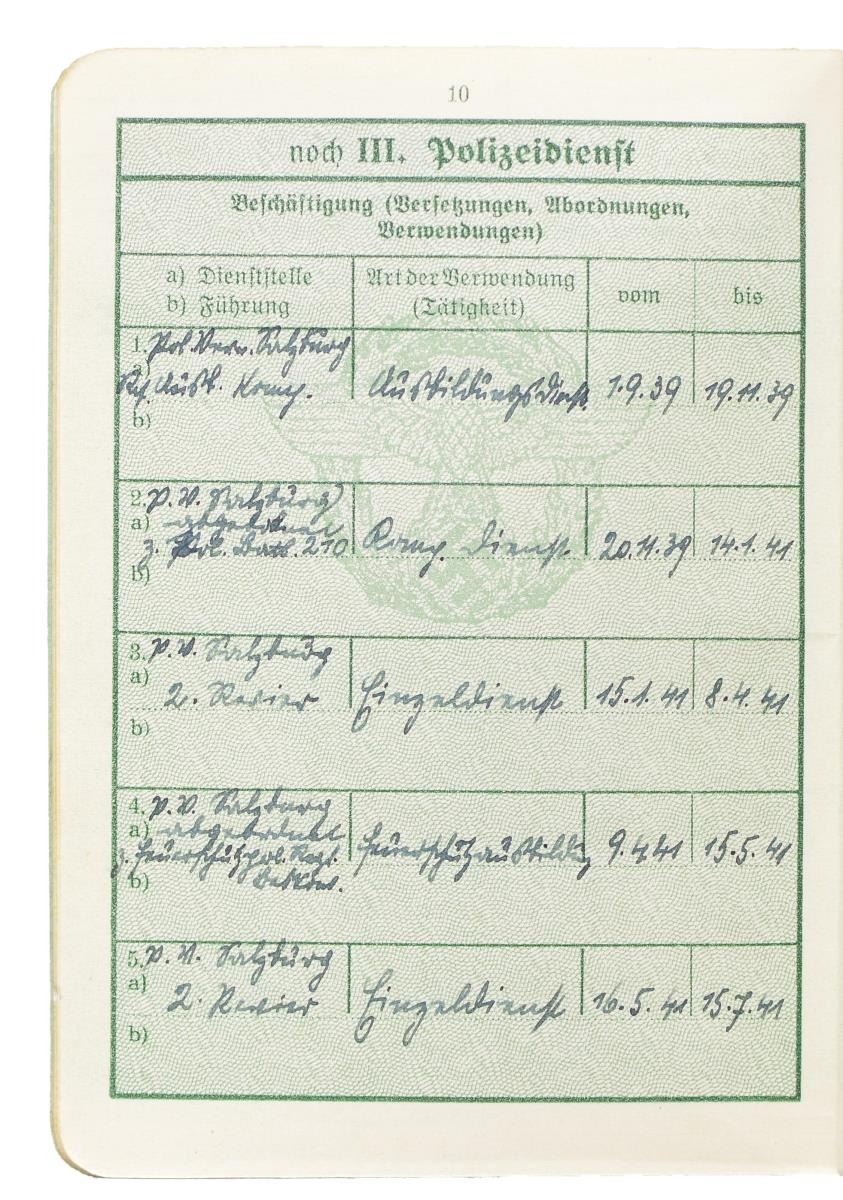 10
noch III. Polizeidienst
Beschäftigung (Versetzungen, Abordnungen,
Verwendungen)
a) Dienststelle
b) Führung
Art der Verwendung
(Tätigkeit)
vom
bis
1. Pol. Verw. Salzburg
a)
Ausb. Komp.
Ausbildungsdienst
1.9.39
19.11.39
b)
2. P.V. Salzburg
a) abgeordnet
z. Pol. Batl. 210
Komp. Dienst
20.11.39
14.1.41
b)
3. P.V. Salzburg
a)
2. Revier
Einzeldienst
15.1.41
8.4.41
b)
4. P.V. Salzburg
a) abgeordnet
z. Feuerschutzpol. Regt.
Feuerschutzausbildung
9.4.41
15.5.41
b)
5. P.V. Salzburg
a)
2. Revier
Einzeldienst
16.5.41
15.7.41
b)